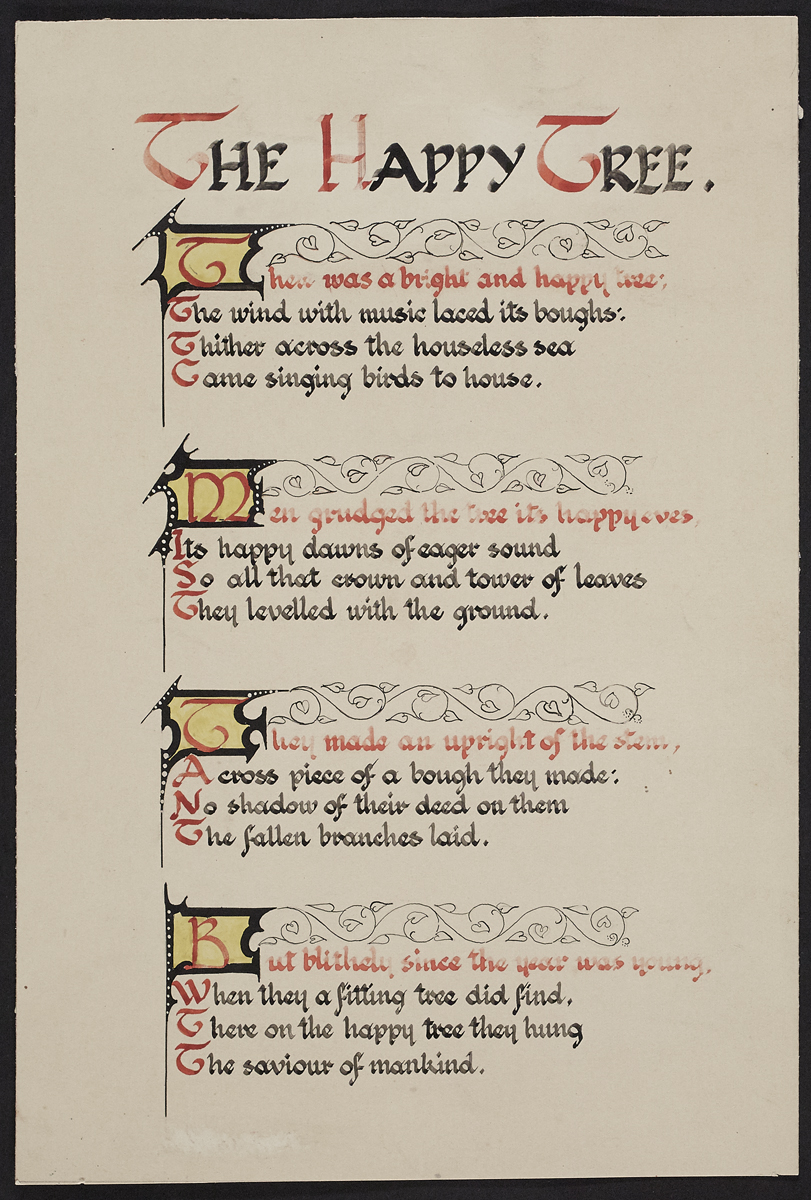 THE HAPPY TREE.
There was a bright and happy tree:
The wind with music laced its boughs:
Thither across the houseless sea
Came singing birds to house.
Men grudged the tree its happy eves,
Its happy dawns of eager sound
So all that crown and tower of leaves
They levelled with the ground.
They made an upright of the stem,
A cross piece of a bough they made:
No shadow of their deed on them
The fallen branches laid.
But blithely since the year was young,
When they a fitting tree did find,
There on the happy tree they hung
The saviour of mankind.